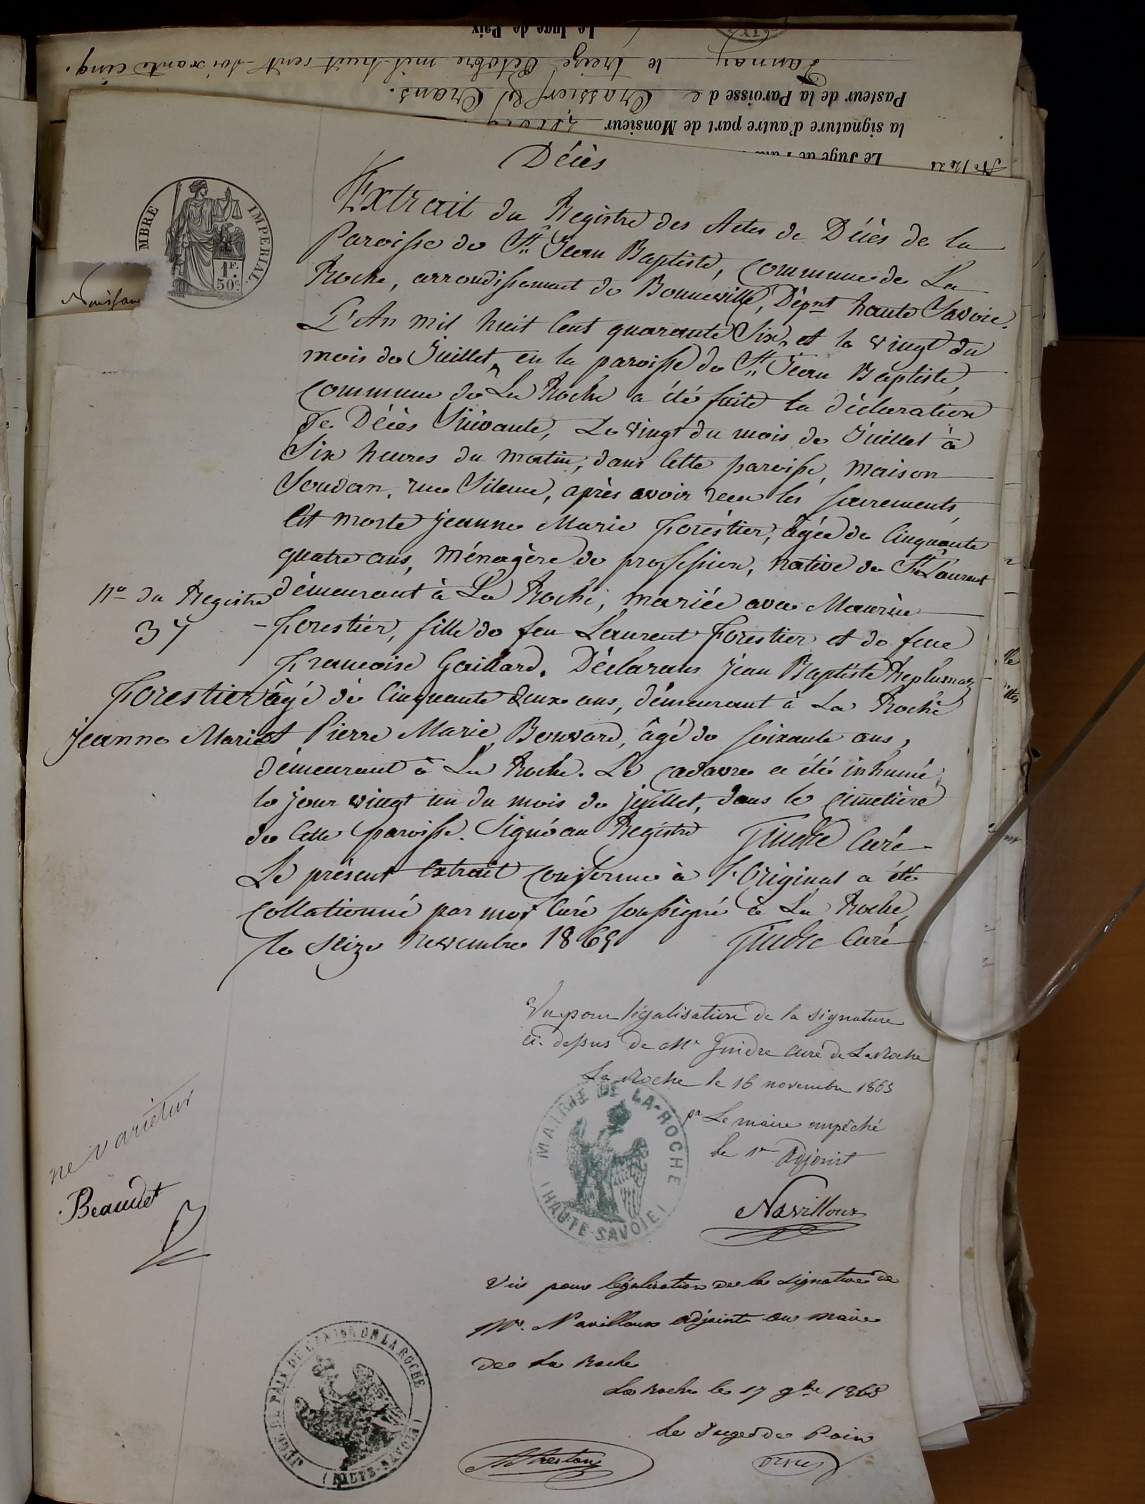 Le Juge de Paix
Lannay le treize Octobre mil huit cent soixante cinq.
Pasteur de la Paroisse de Crassier & Crans.
la signature d'autre part de Monsieur
Le Juge de
Décès
TIMBRE IMPERIAL
1F.
50c
Naissan
Extrait du Registre des Actes de Décès de la
Paroisse de St Jean Baptiste, commune de La
Roche, arrondissement de Bonneville, Dépnt haute Savoie.
L'An mil huit Cent quarante Six, et le vingt du
mois de Juillet, en la paroisse de St Jean Baptiste,
commune de La Roche a été faite la déclaration
de Décès Suivante, Le vingt du mois de Juillet à
Six heures du matin, dans cette paroisse, maison
Soudan, rue Silence, après avoir reçu les sacrements,
est morte Jeanne Marie Forestier, âgée de Cinquante
quatre ans, ménagère de profession, native de St Laurent
démeurant à La Roche, mariée avec Maurice
Forestier, fille de feu Laurent Forestier et de feue
Francoise Gaillard. Déclarans Jean Baptiste
âgé de Cinquante deux ans, démeurant à La Roche
et Pierre Marie Bouvard, âgé de soixante ans,
démeurant à La Roche. Le cadavre a été inhumé
le jour vingt un du mois de juillet, dans le cimetière
de cette paroisse. Signé au Registre Gindre Curé
Le présent Extrait conforme à l'Original a été
collationné par moi Curé soussigné à La Roche,
le Seize novembre 1865 Gindre Curé
No du Registre
37
Forestier
Jeanne Marie
Vu pour légalisation de la signature
ci-dessus de Mr Gindre curé de La Roche
La Roche le 16 novembre 1865
pr Le maire empêché
le 1er Adjoint
Navilloux
MAIRIE DE LA-ROCHE
(HAUTE-SAVOIE)
ne varietur
Beaudet
Vu pour légalisation de la signature de
Mr. Navilloux adjoint au maire
de La Roche
La Roche le 17 9bre 1865
le Juge de Paix
JUGE DE PAIX DU CANTON DE LA ROCHE
(HAUTE-SAVOIE)